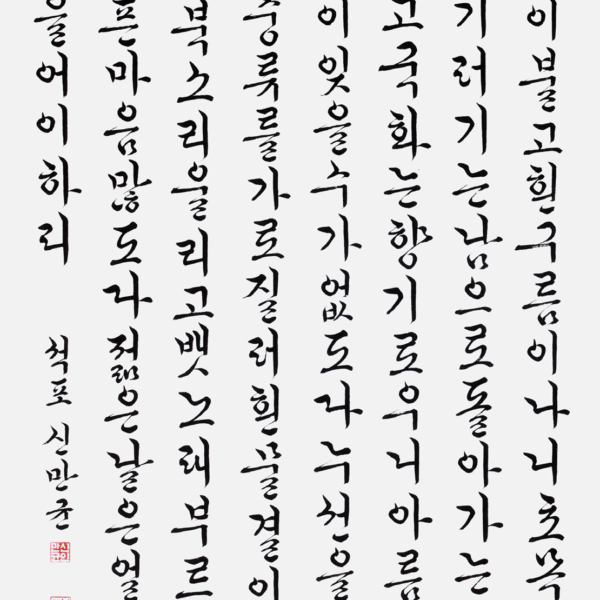 이불고흰구름이나니초목
기러기는남으로돌아가는
고국화는향기로우니아름
이잊을수가없도다누선을
중류를가로질러흰물결이
북소리울리고뱃노래부르
픈마음많도다젊은날은얼
을어이하리
석포 신만균